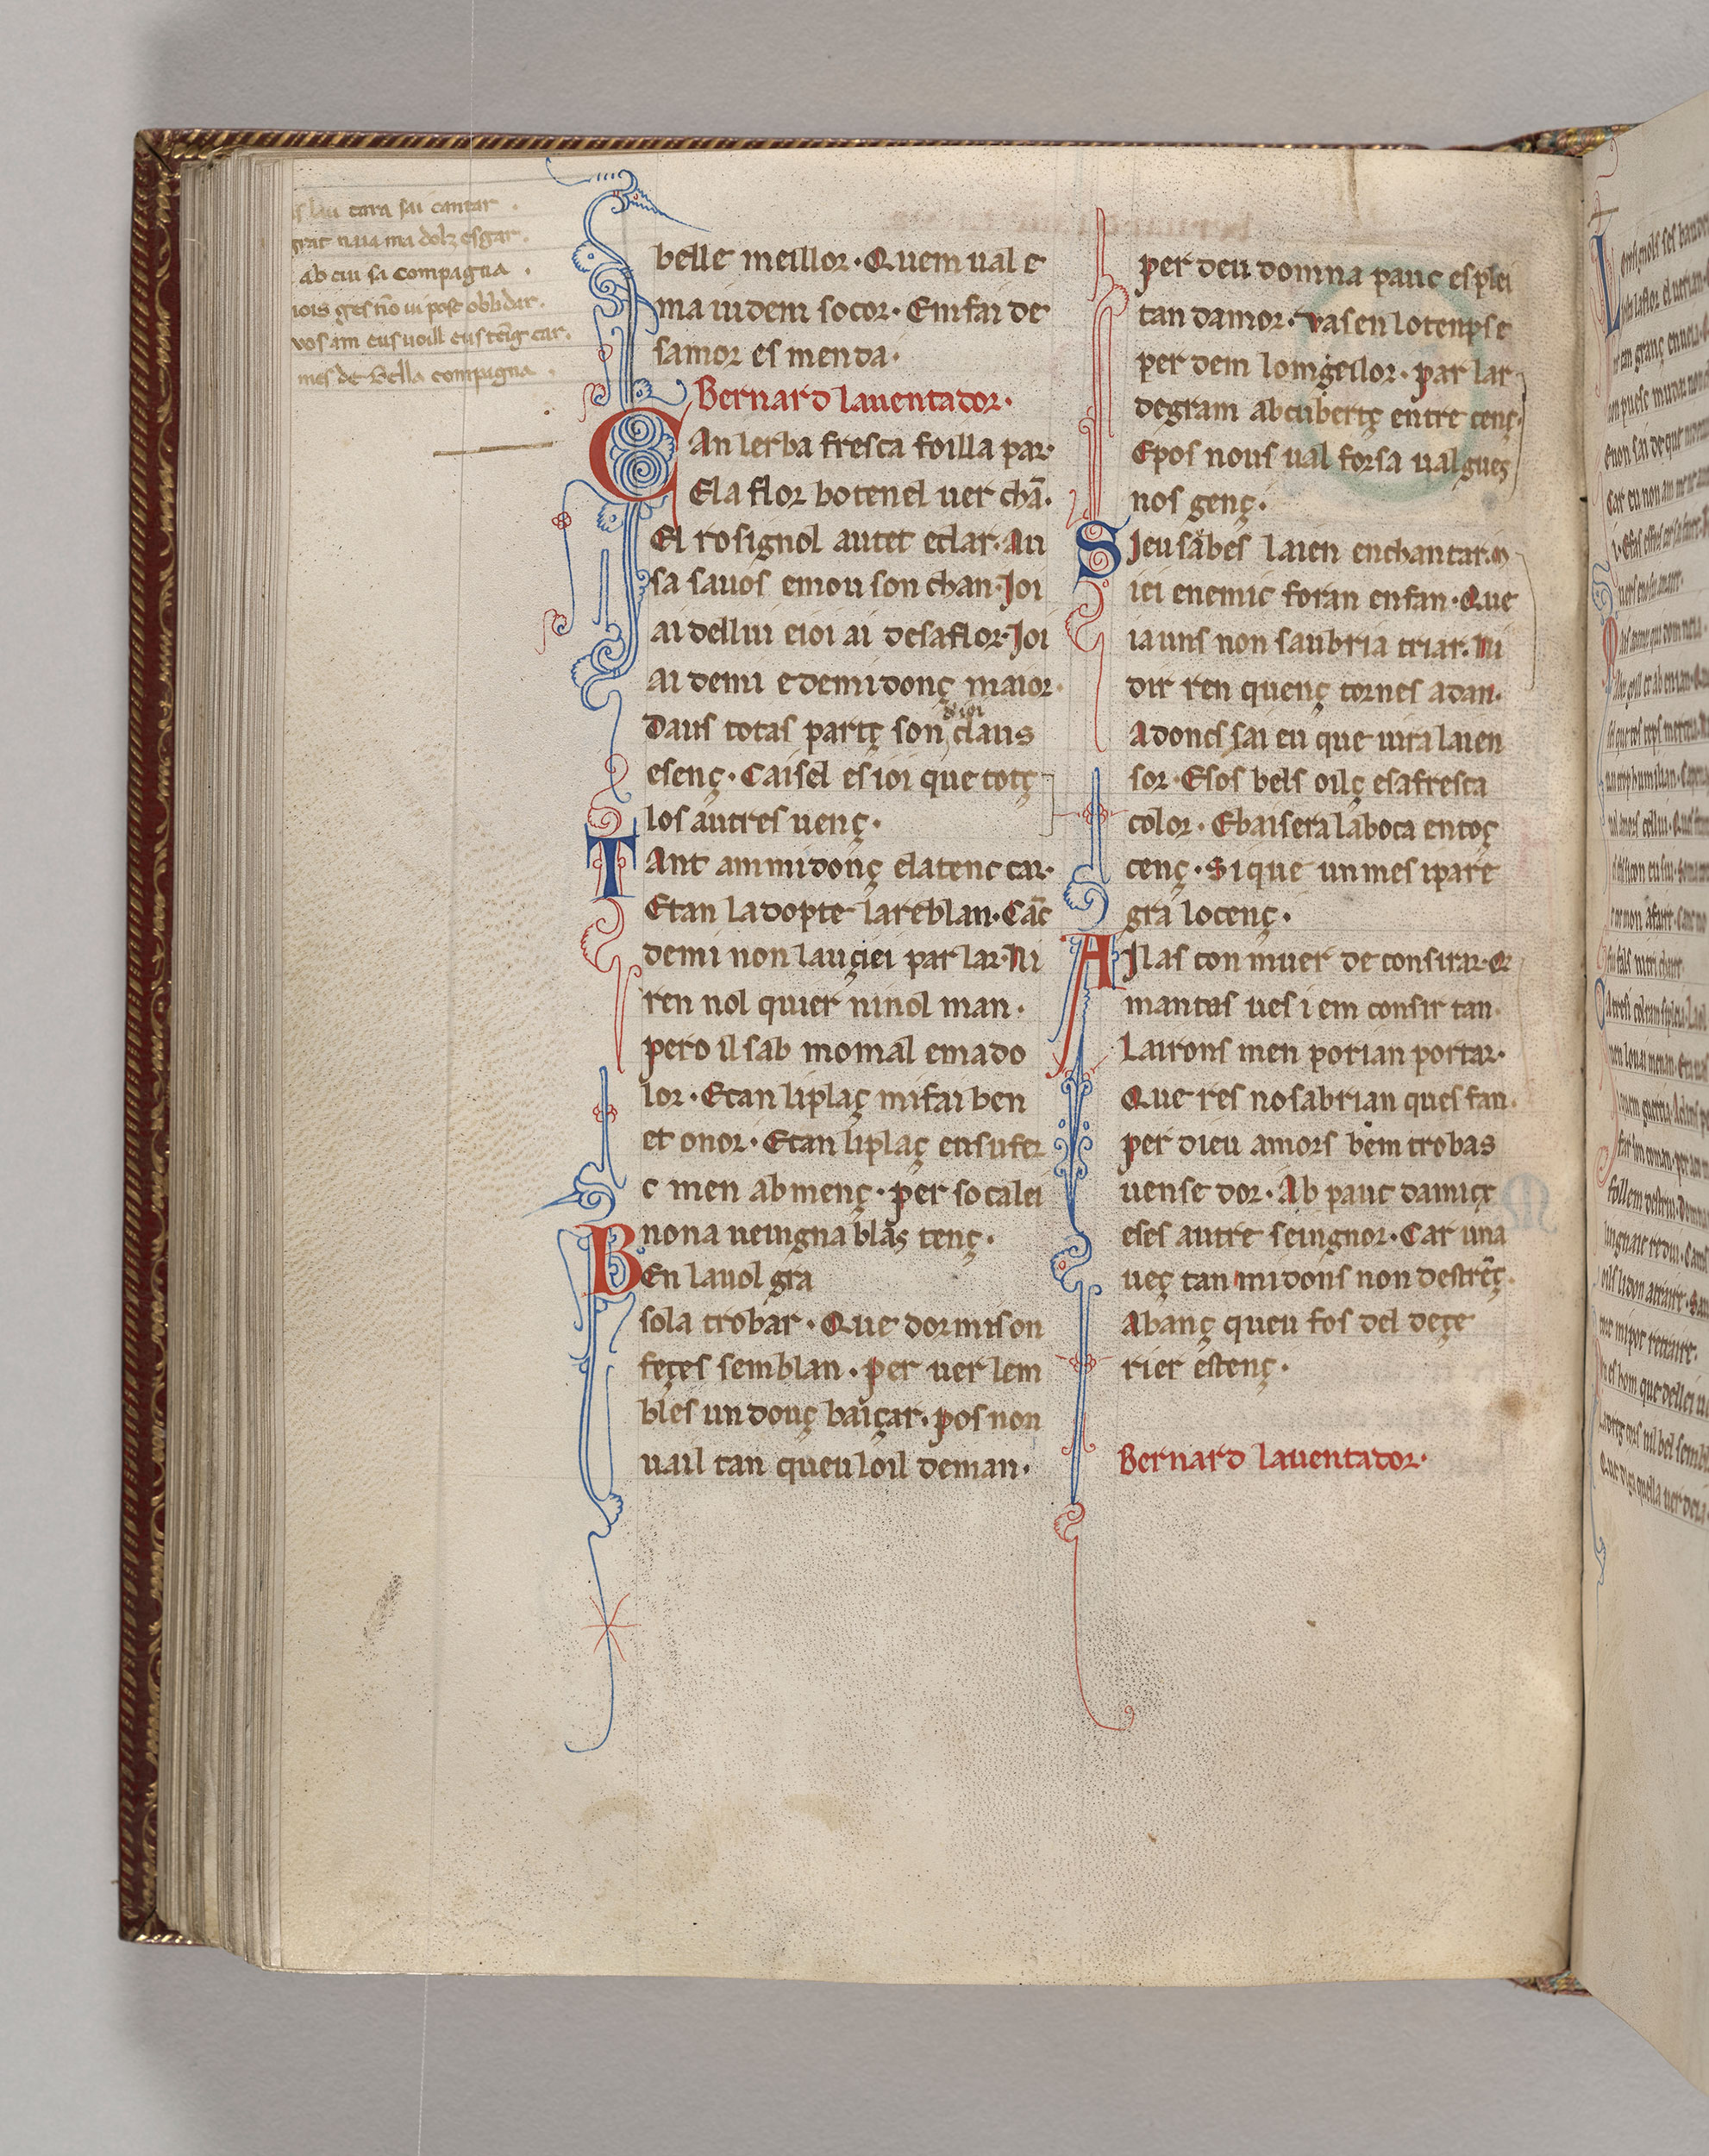 cara sai cantar .
grat nuia ma dolz esgar .
ab cui fa compagna .
iois ges nō ui post oblidar .
vos am eus uoill eus teīg car .
mes de bella compagna .
belle meillor · Quem ual e
ma iudem socor · Em fai de
samor es menda ·
Bernard lauentador ·
CAn lerba fresca foilla par ·
E la flor botenel uer chā ·
El rosignol autet eclar · Au
sa sauos emou son chan · Joi
ai dellui eioi ai desaflor · Joi
ai demi edemidonç maior ·
Daus totas partç son claus
esenç · Caisel es ioi que totç
los autres uenç ·
TAnt am midonç elatenc car ·
Etan la dopte lareblan · Cāc
demi non lauçiei parlar · Ni
ren nol quier ninol man ·
pero il sab momal emado
lor · Etan li plaç mi fai ben
et onor · Etan li plaç ensufer
c men ab menç · per so calei
nona ueingna blas tenç ·
BEn lauol gra
sola trobar · Que dormison
feçes semblan · per uer lem
bles un douç baiçar · pos non
uail tan queu loil deman ·
per deu domna pauc esplei
tan damor · vasen lotenps e
per dem lo migellor · parlar
degram ab cubertç entre cenç ·
Epos nous ual forsa ualgues
nos genç ·
SJeu sabes laien enchantar · m
iei enemic foran enfan · Que
ia uns non saubria triar · Ni
dir ren quenç tornes adan ·
Adoncs sai eu que uira laien
sor · Esos bels oilç esafresca
color · Ebaisera la boca entoç
cenç · Si que un mes ipare
gra locenç ·
AJlas con muer de consirar · Q
mantas ues i em consir tan ·
Lairons men porian portar ·
Que res no sabrian ques fan ·
per dieu amors bem trobas
uense dor · Ab pauc damicx
eses autre seingnor · Car una
ueç tan midons non destrēç ·
Abanç queu fos del deçe
rier estenç ·
Bernard lauentador ·